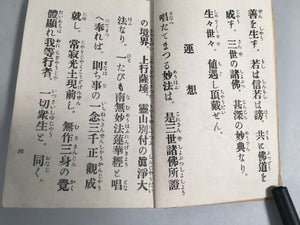 善を生ず。若は信若は謗、共に佛道を
成ず。三世の諸佛、甚深の妙典なり。
生々世々、値遇し頂戴せん。
運想
唱たてまつる妙法は、是三世諸佛所證
の境界、上行薩埵、靈山別付の眞淨大
法なり、一たびも南無妙法蓮華經と唱
へ奉れば、則ち事の一念三千正觀成
就し、常寂光土現前し、無作三身の覺
體顯れ我等行者、一切衆生と、同く。
四